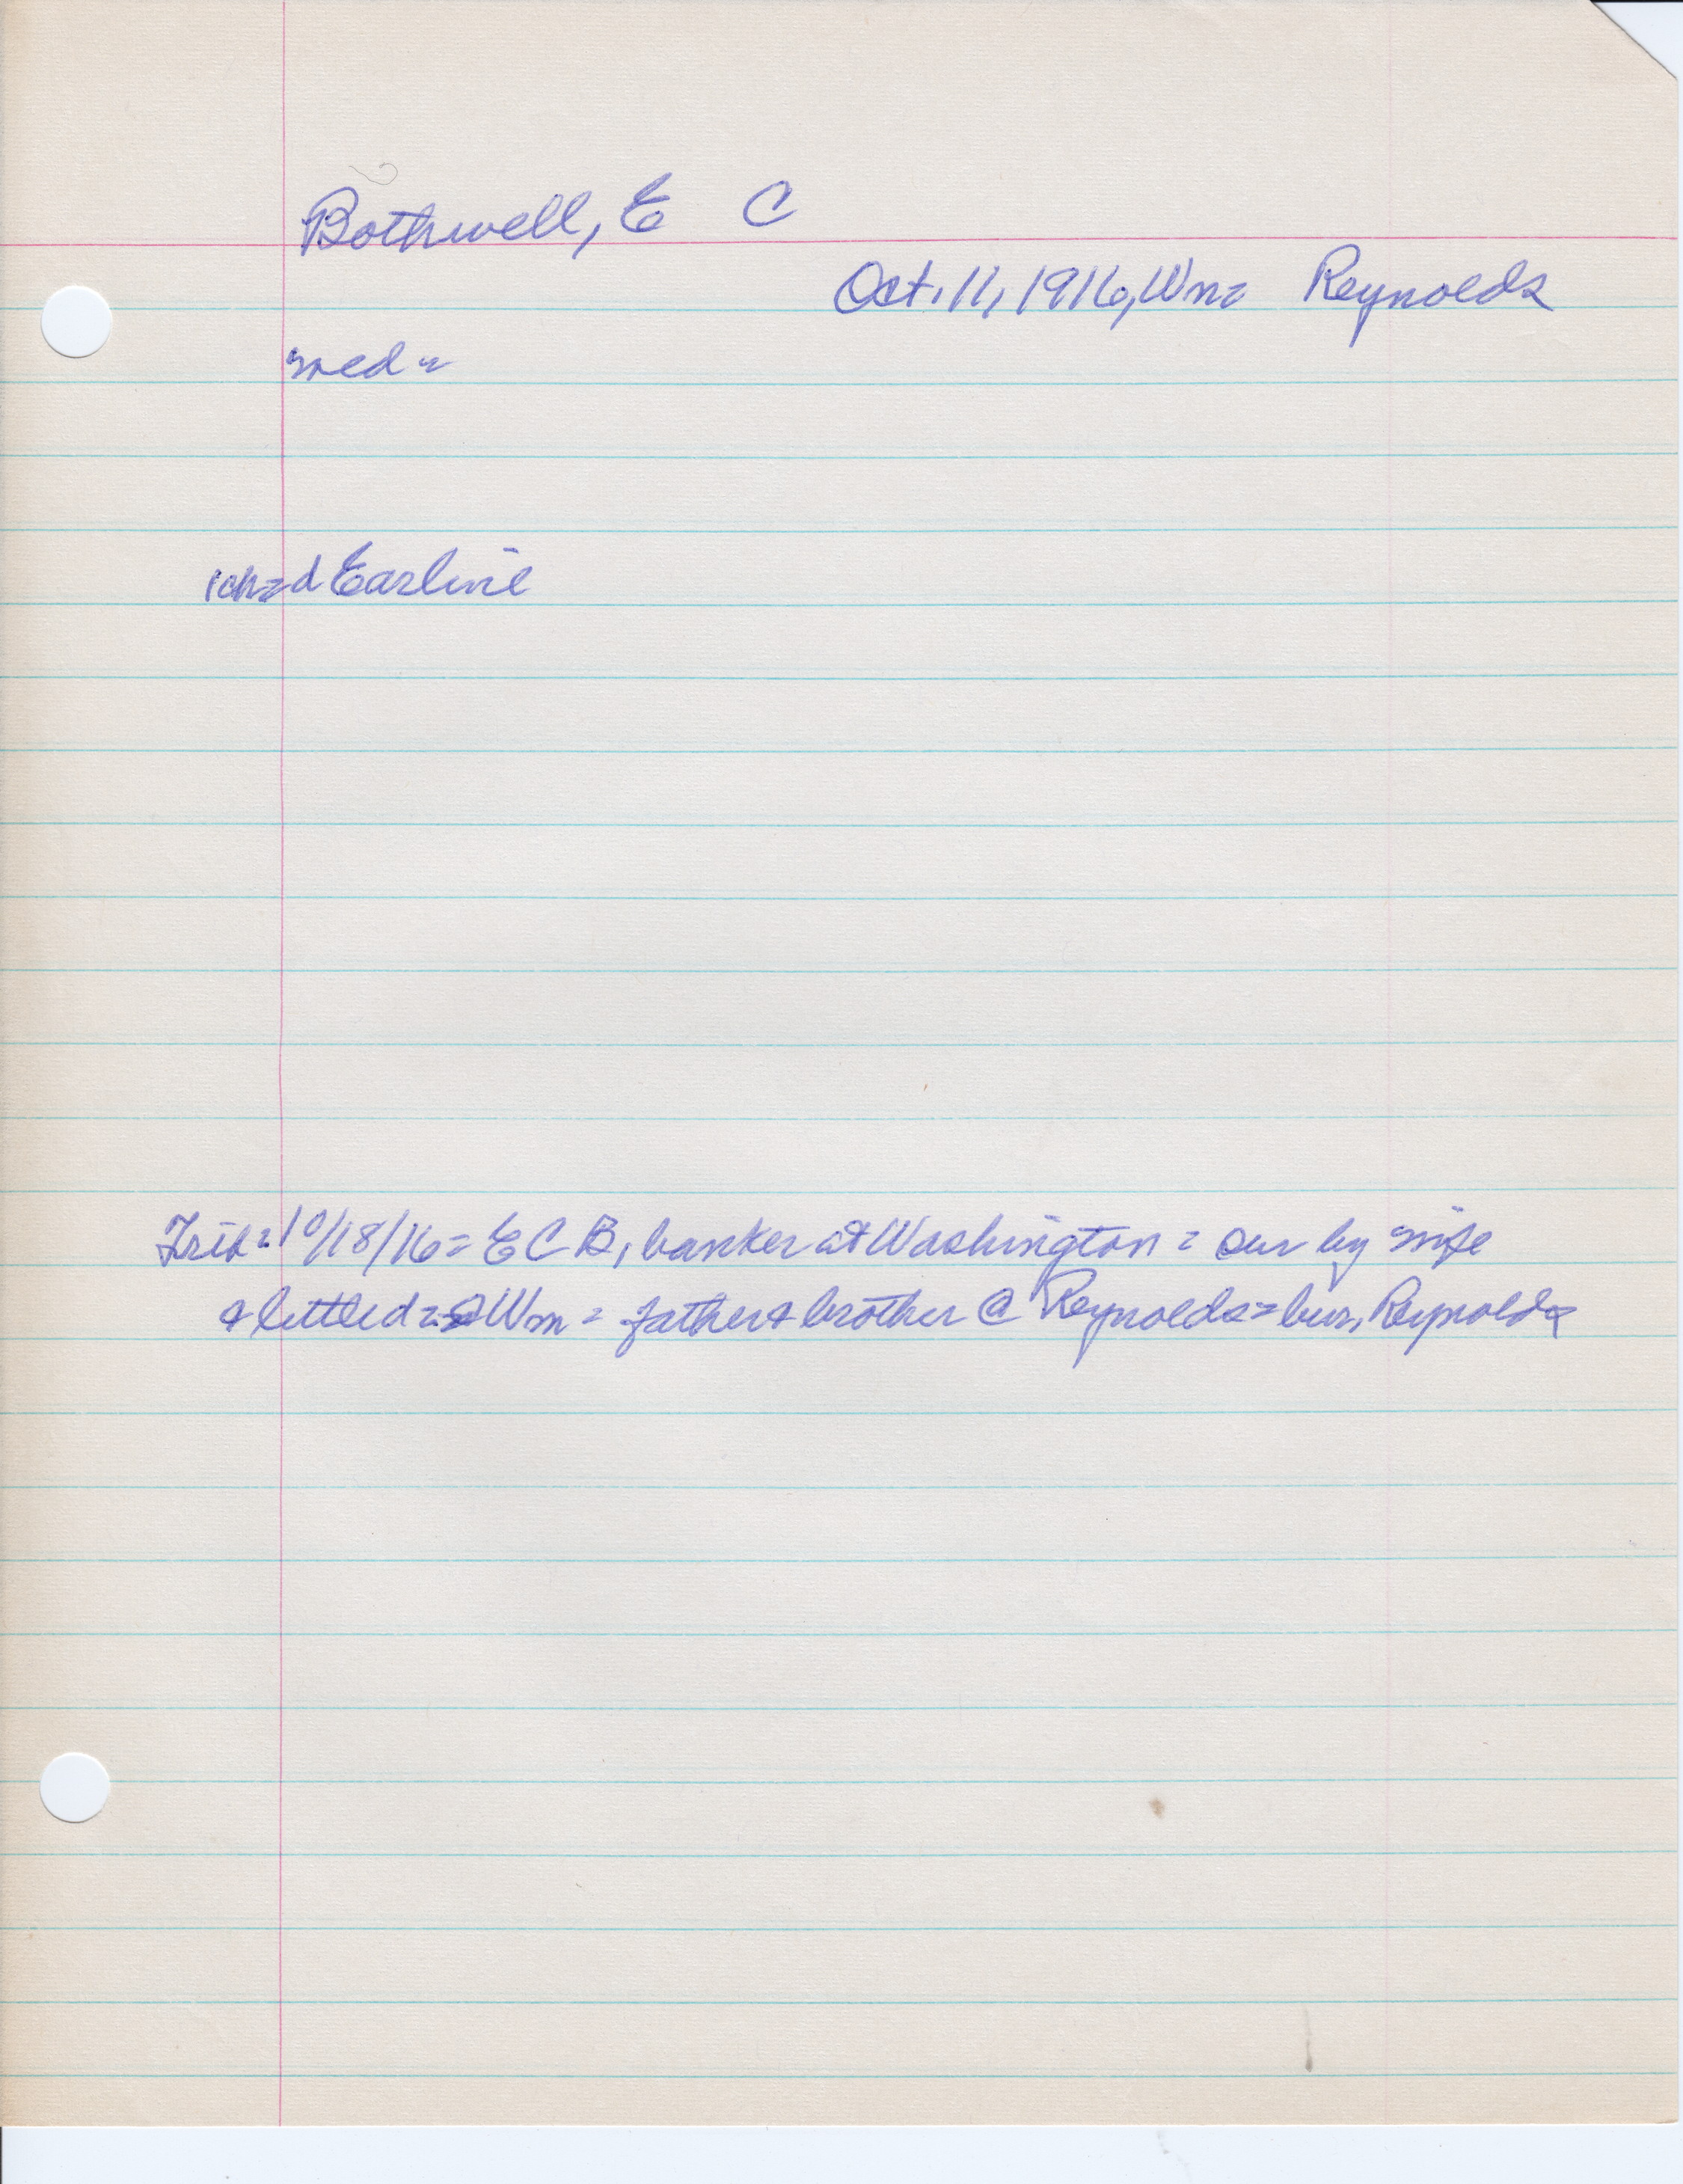 Bothwell, E C
Oct. 11, 1916, Wm = Reynolds
med =
1ch=d Earline
Trib = 10/18/16 = E C B, banker at Washington = sur by wife
& little d = @ Wm = father & brother @ Reynolds = bur, Reynolds